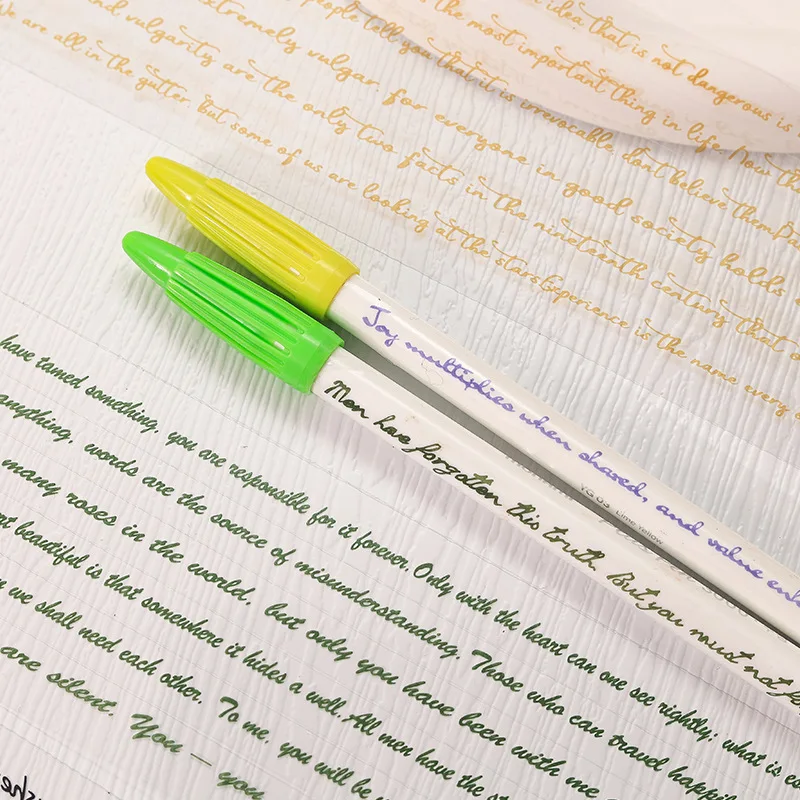 idea that is not dangerous is
people tell you the most important thing in life. Now
and vulgarity extremely vulgar. for everyone that it is irrevocable, don't believe them
We are all in the gutter, but are the only two facts in good society holds
some of us are looking in the nineteenth century that
at the stars Experience is the name every
Joy multiplies when shared, and value
YG 03 Lime Yellow
Men have forgotten this truth. But you must not
have tamed something, you are responsible for it forever. Only with the heart can one see rightly; what is
anything, words are the source of misunderstanding. Those who can travel
many roses in the world, but only you have been with me
beautiful is that somewhere it hides a well. All men have the
we shall need each other. To me, you will be
are silent. You — you